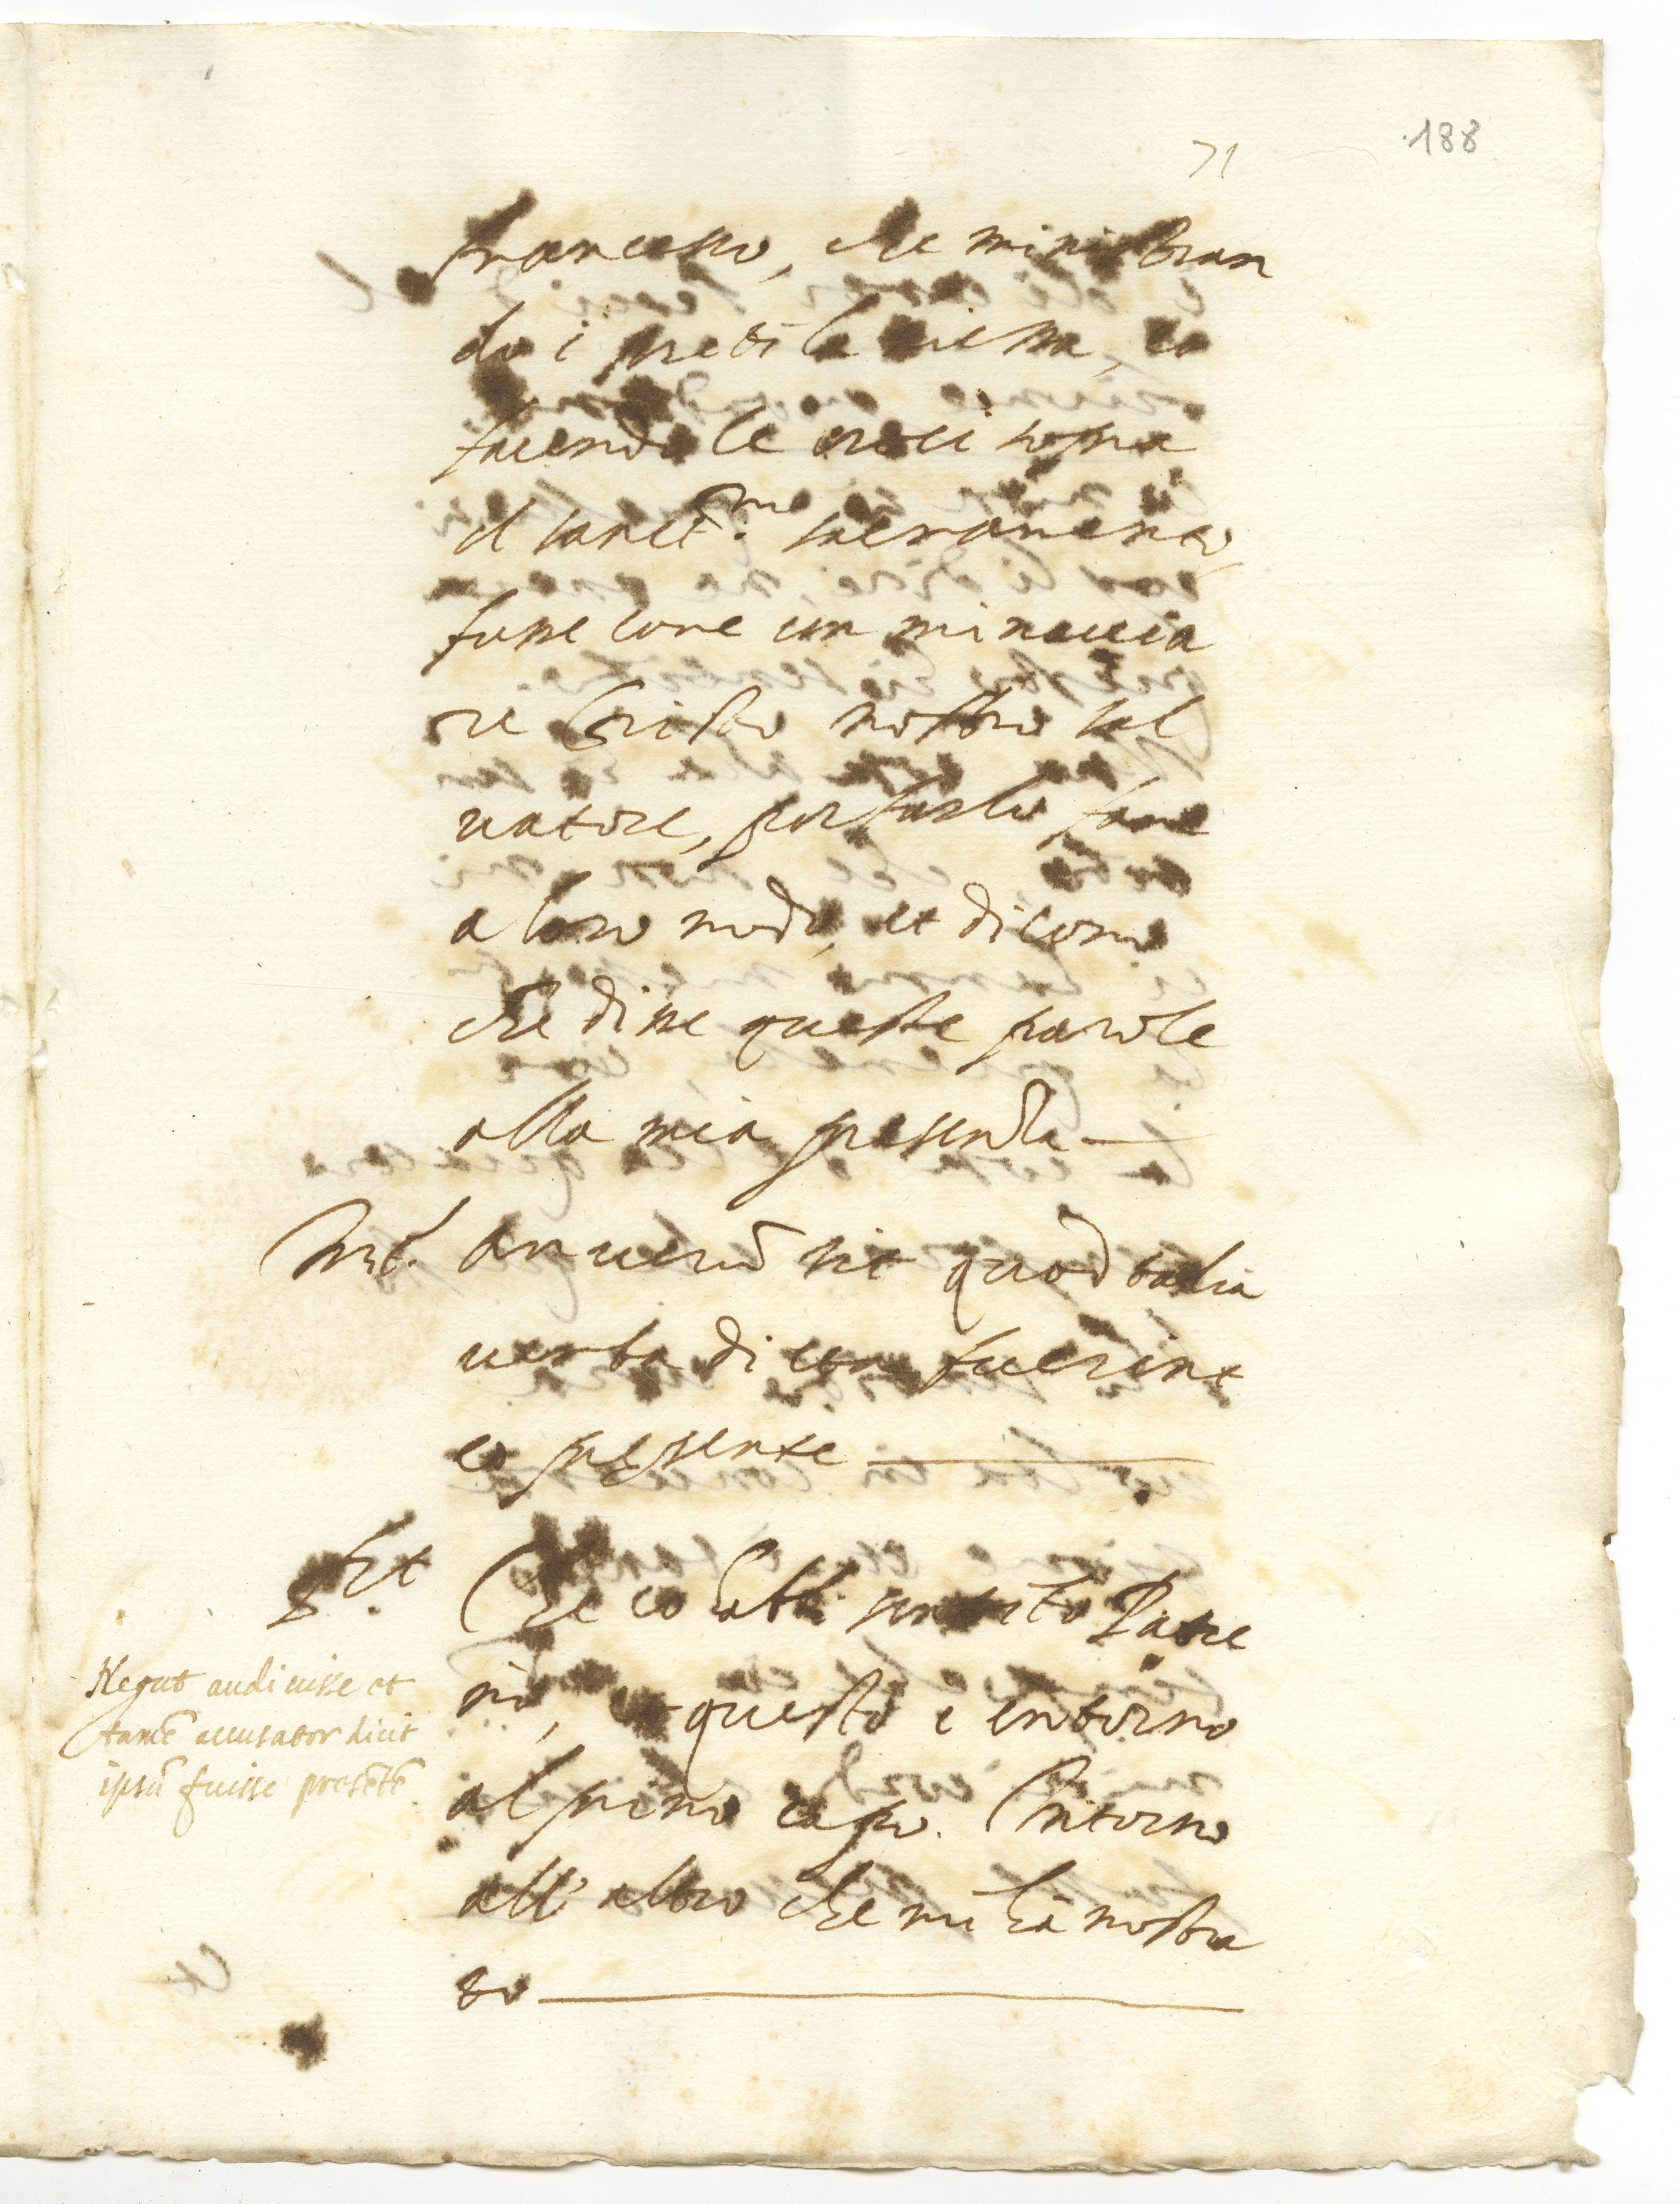 188
71
francesco, che ministran
do i preti la messa, et
facendo le croci sopra
il sanct.mo sacramento
fusse come un minaccia
re Cristo nostro sal
vatore, per farlo fare
a loro modo, et dicono
che disse queste parole
alla mia presentia
Int. an verū sit quod talia
verba dicta fuerint
eo presente
Rt. Che io habbi sentito Patre
nō, et questo è intorno
al primo capo. Intorno
all' altro che mi hà mostra
to
Negat audivisse et
tamē accusator dicit
ipsū fuisse presētē